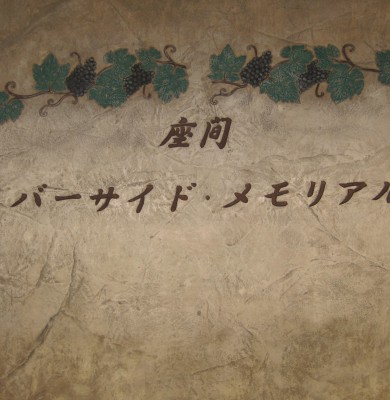 座间
バーサイド・メモリアル